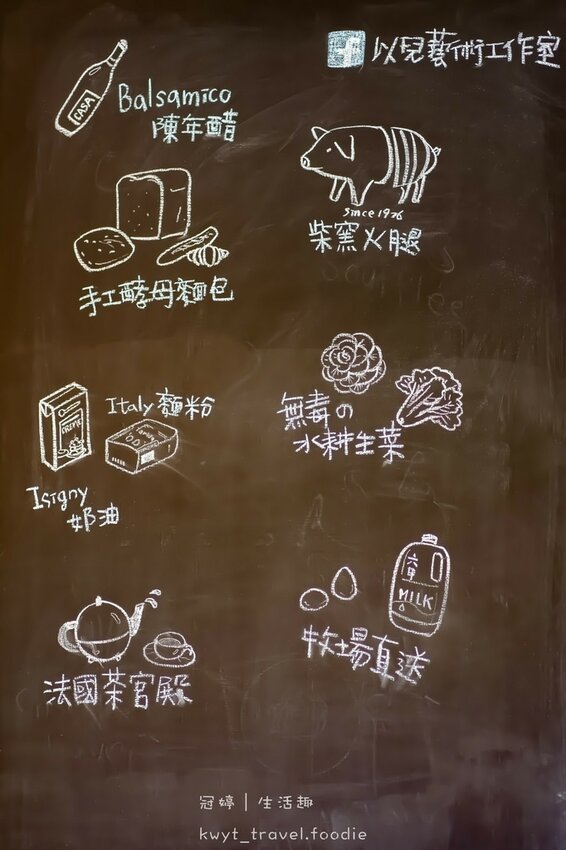 f 以兒藝術工作室
CASA
Balsamico
陳年醋
since 1976
柴窯火腿
手工酵母麵包
CREME
Italy 麵粉
Isigny
奶油
無毒の
水耕生菜
MILK
牧場直送
法國茶宮殿
冠婷｜生活趣
kwyt_travel.foodie